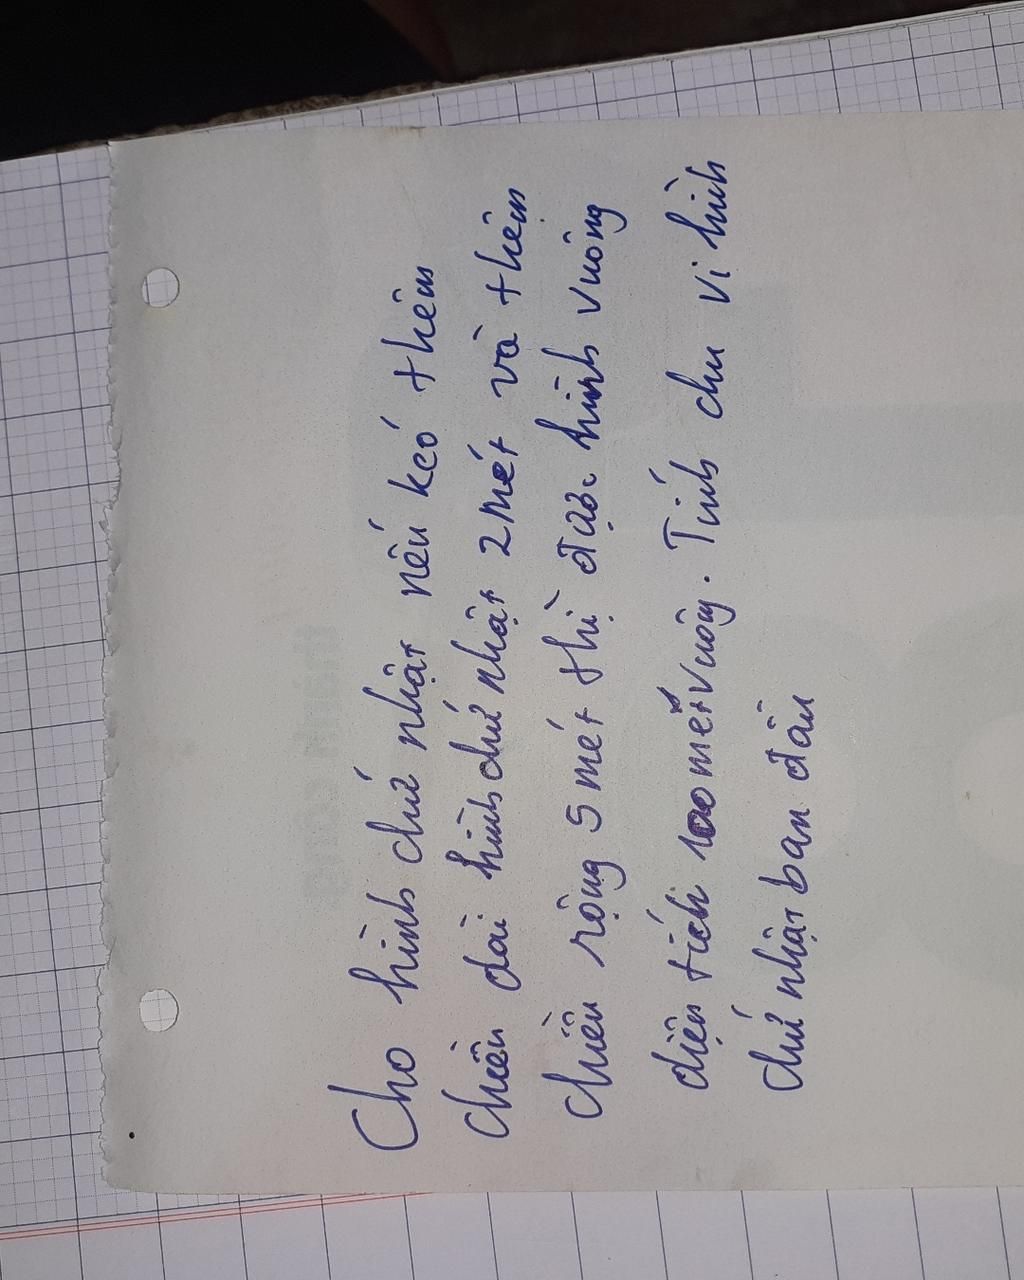 Cho hình chữ nhật nếu kéo thêm
chiều dài hình chữ nhật 2 mét và thêm
chiều rộng 5 mét thì được hình vuông
diện tích 100 mét vuông. Tính chu vi hình
chữ nhật ban đầu